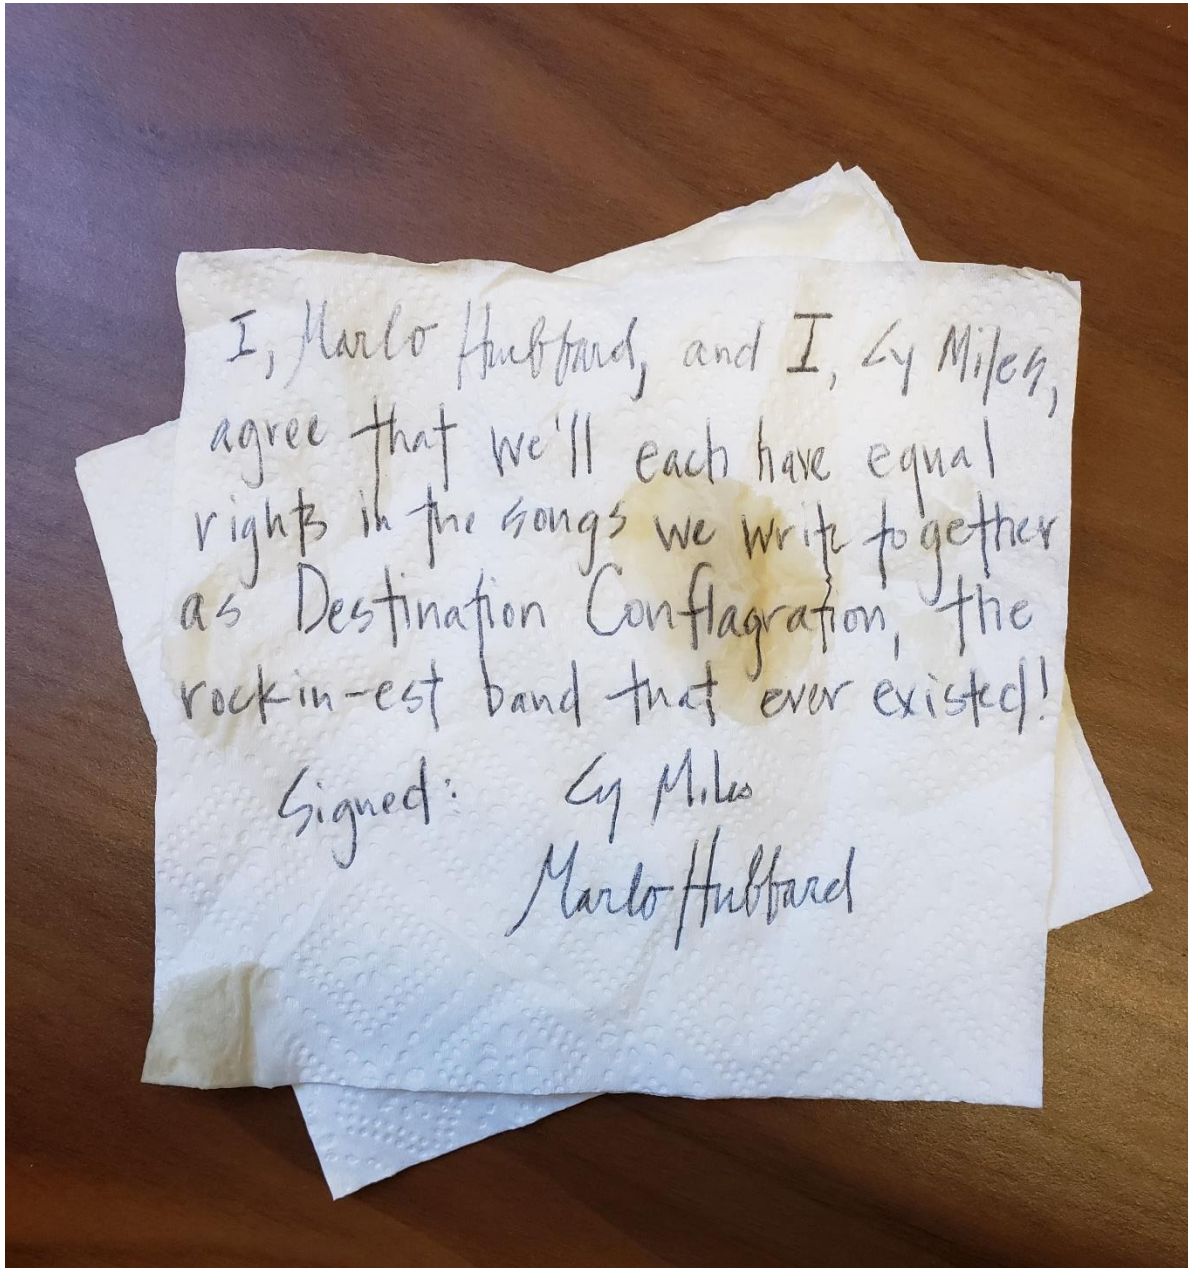 I, Marlo Hubbard, and I, Cy Miles,
agree that we'll each have equal
rights in the songs we write together
as Destination Conflagration, the
rockin-est band that ever existed!
Signed: Cy Miles
Marlo Hubbard